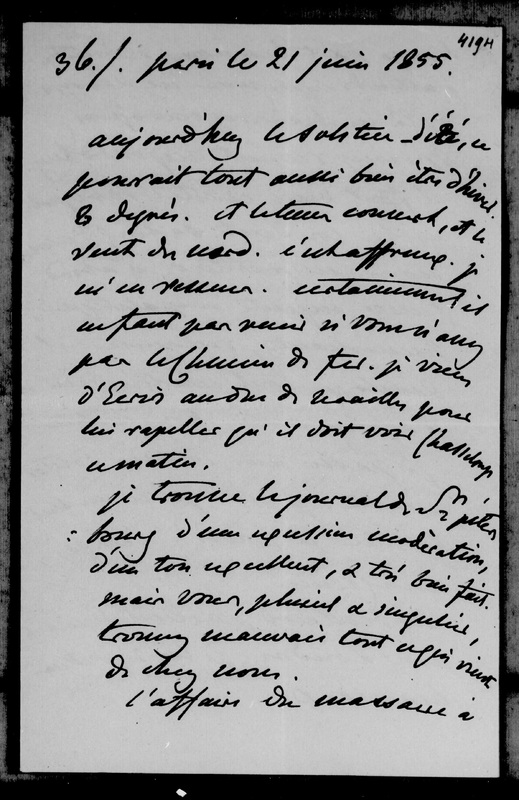 419H
36./. paris le 21 juin 1855.
aujourd'huy le solstice d'été, ce
pourrait tout aussi bien être d'hiver.
8 degrés. et le tems couvert, et le
vent du nord. c'est affreux. je
m'en ressens. certainement il
ne faut pas venir si vous n'avez
pas le chemin de fer. je viens
d'Ecrire au duc de Noailles pour
lui rapeller qu'il doit voir Chasseloup
ce matin.
je trouve le journal de St péters
bourg d'une expression modération,
d'un ton excellent, & très bien fait.
mais vous, pluriel & singulier,
trouvez mauvais tout ce qui vient
de chez nous.
l'affaire du massacre à